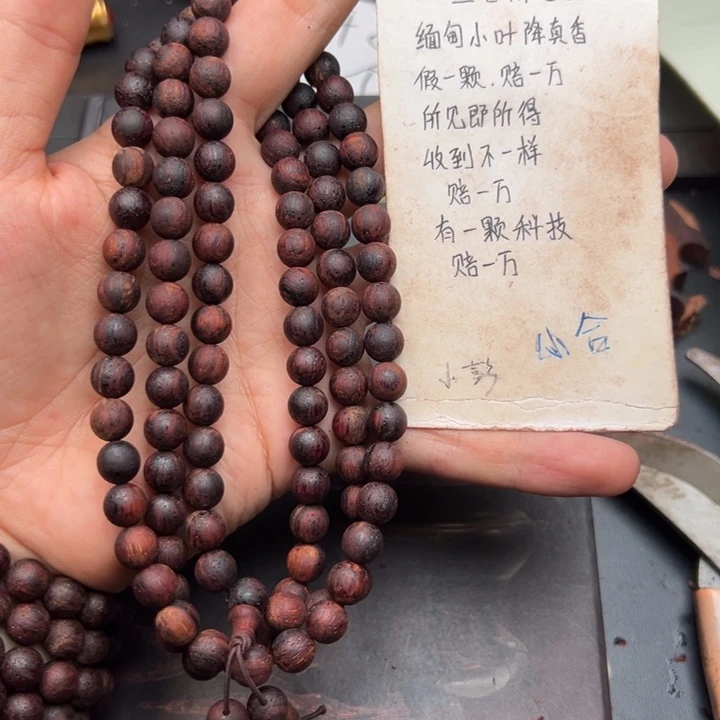 缅甸小叶降真香
假一颗.赔一万
所见即所得
收到不一样
赔一万
有一颗科技
赔一万
小合
小彭